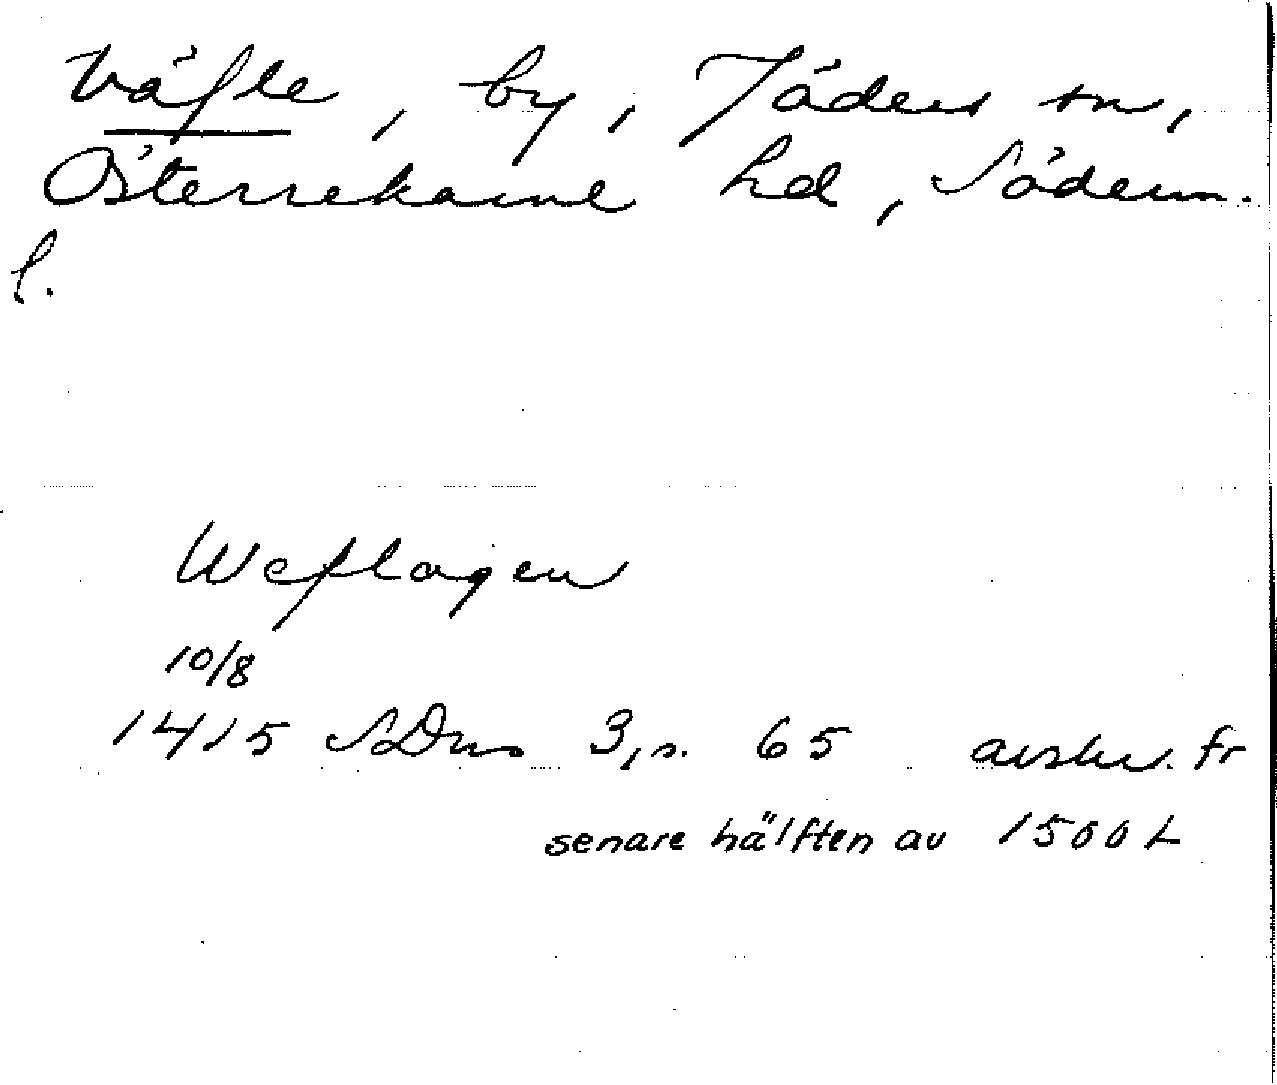 Väfle, by, Jäders sn,
Österrekarne hd, Söderm.
l.
Weflagen
10/8
1415 SDns 3, s. 65 avskr. fr
senare hälften av 1500 t